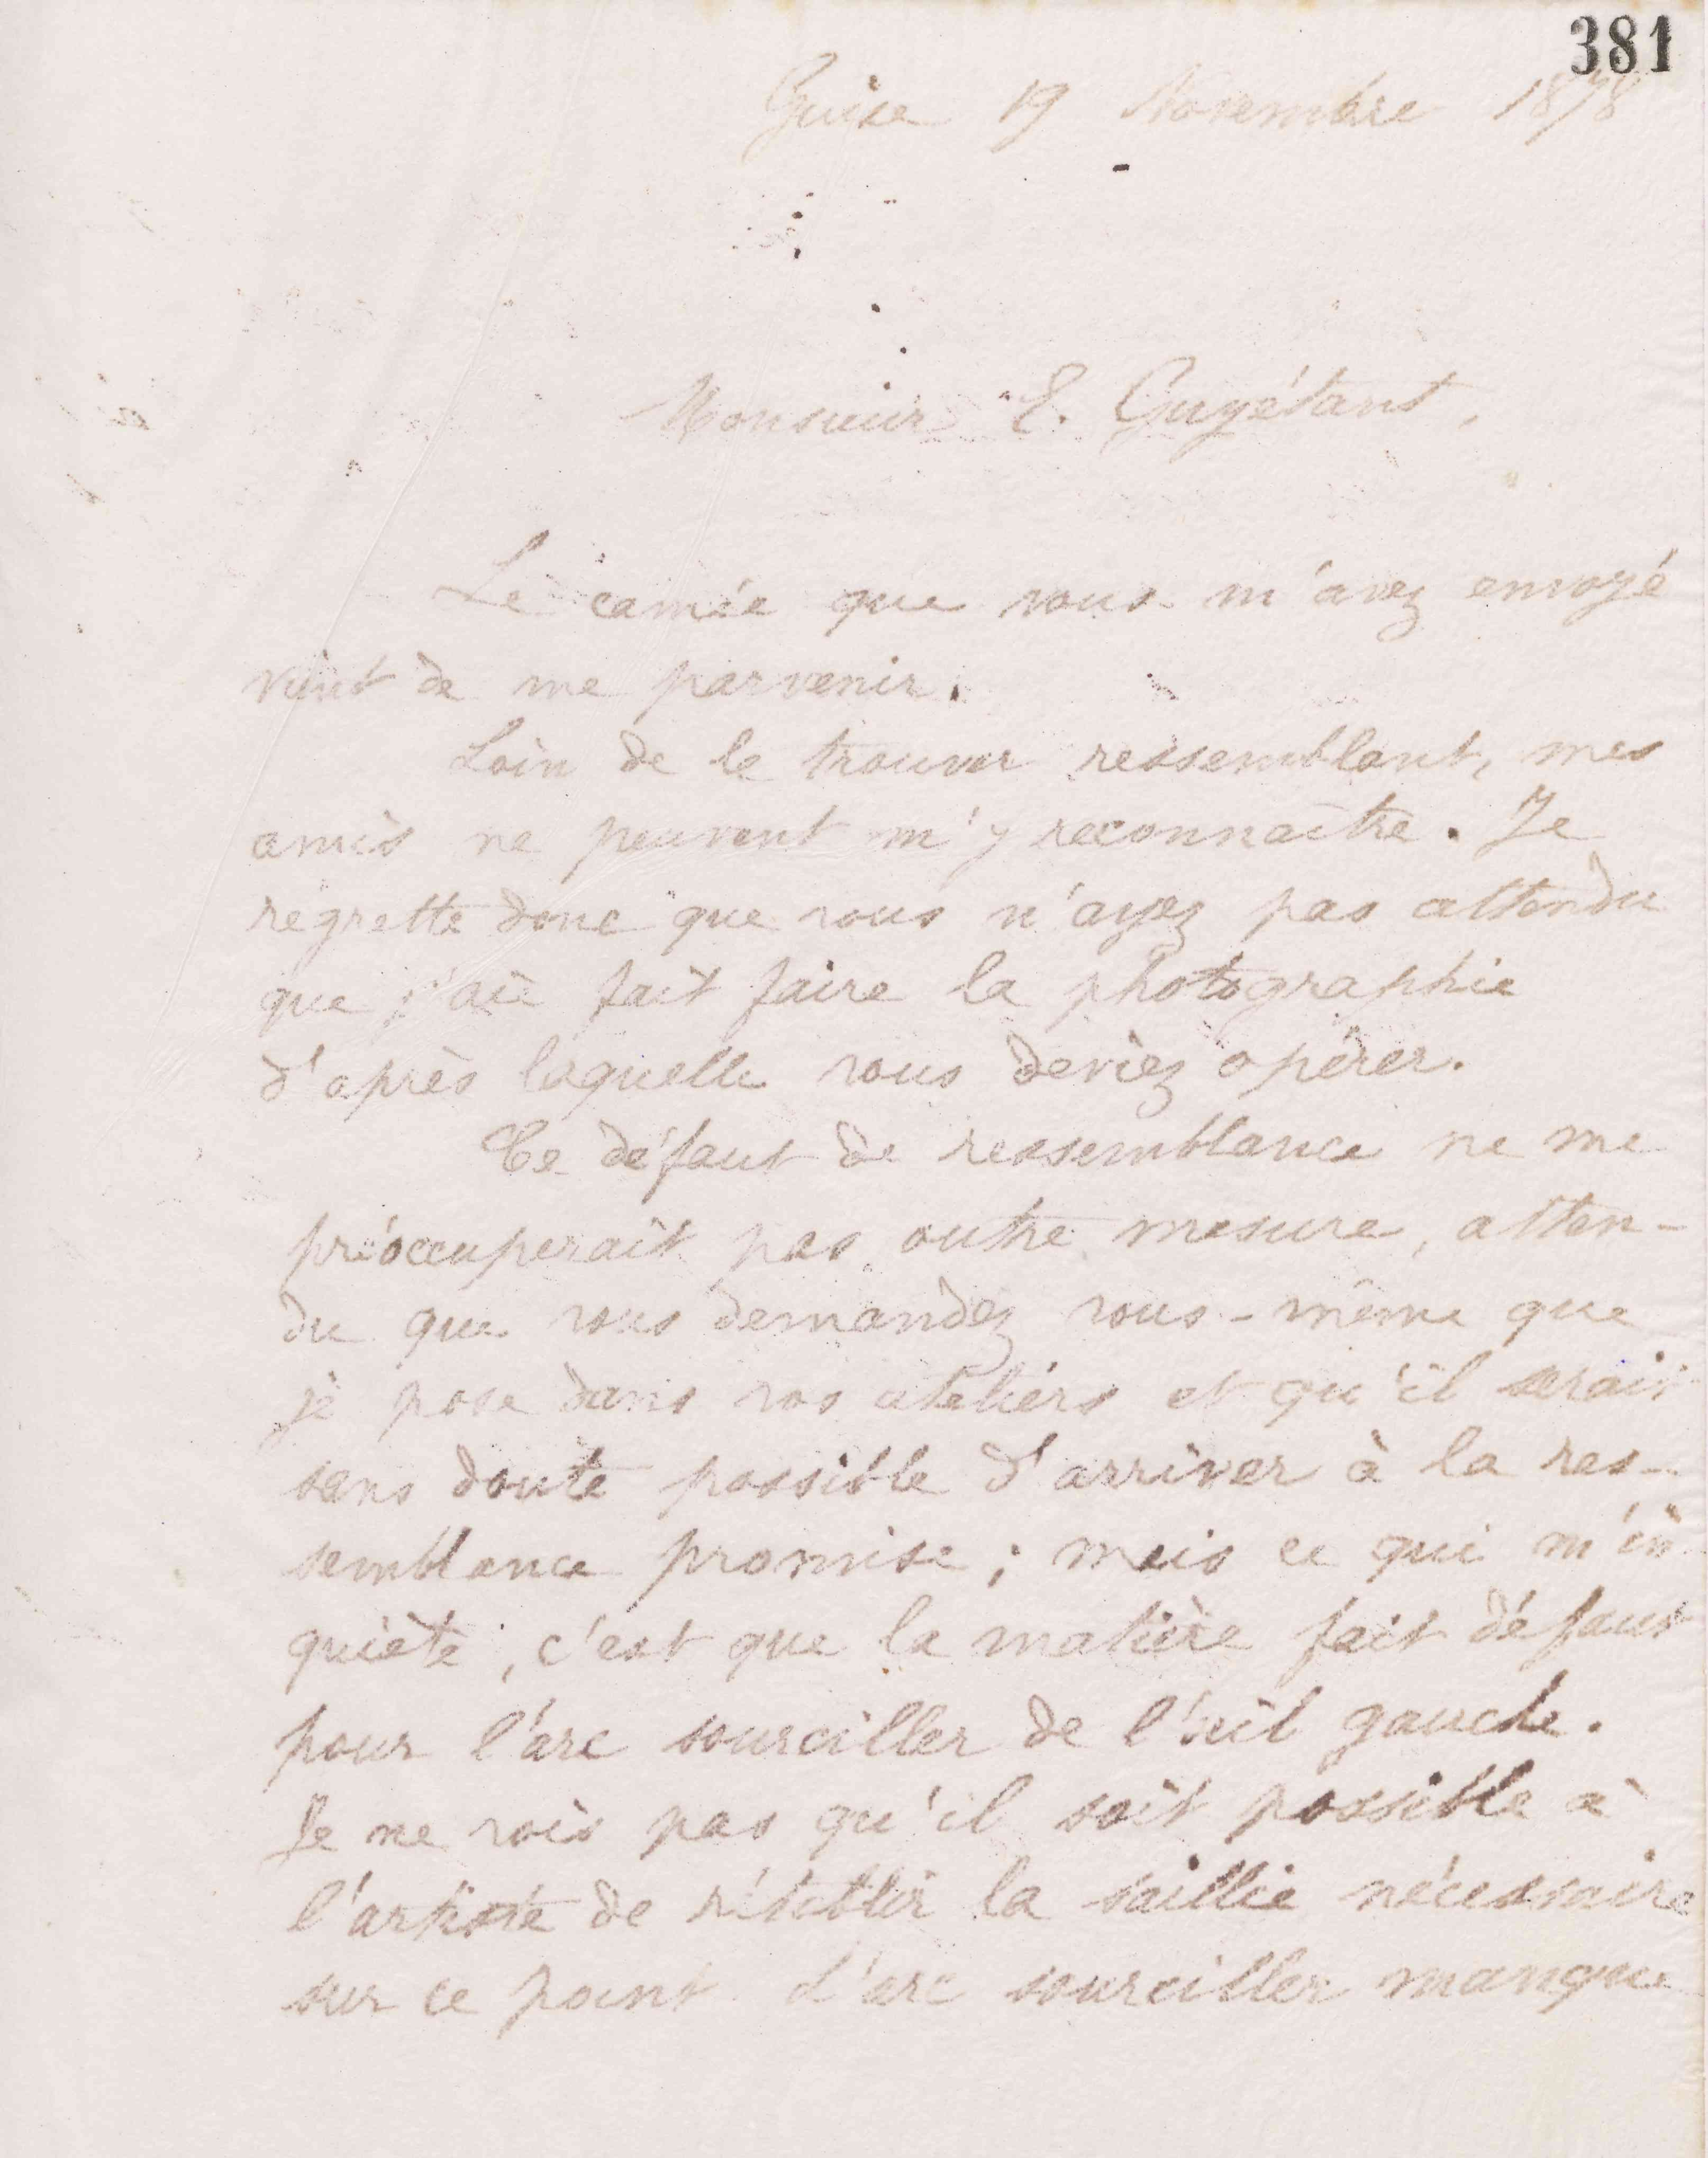 381
Guise 19 Novembre 1878
Monsieur E. Guyétant,
Le camée que vous m'avez envoyé
vient de me parvenir.
Loin de le trouver ressemblant, mes
amis ne peuvent m'y reconnaître. Je
regrette donc que vous n'ayez pas attendu
que j'aie fait faire la photographie
d'après laquelle vous deviez opérer.
Ce défaut de ressemblance ne me
préoccuperait pas outre mesure, atten-
du que vous demandez vous-même que
je pose dans vos ateliers et qu'il serait
sans doute possible d'arriver à la res-
semblance promise; mais ce qui m'in
quiète, c'est que la matière fait défaut
pour l'arc sourciller de l'œil gauche.
Je ne vois pas qu'il soit possible à
l'artiste de rétablir la saillie nécessaire
sur ce point. L'arc sourciller manque